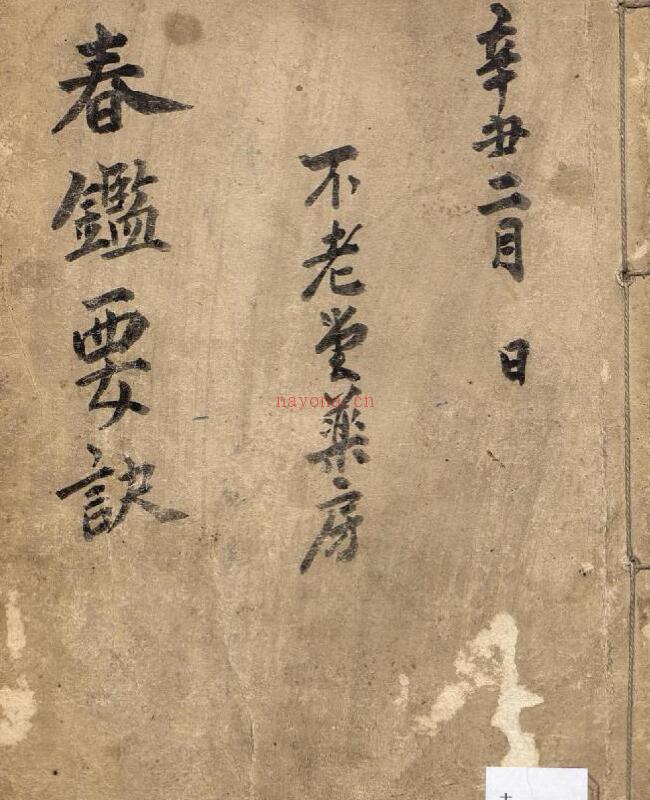 辛丑二月 日
不老堂藥房
春鑑要訣
nayona.cn